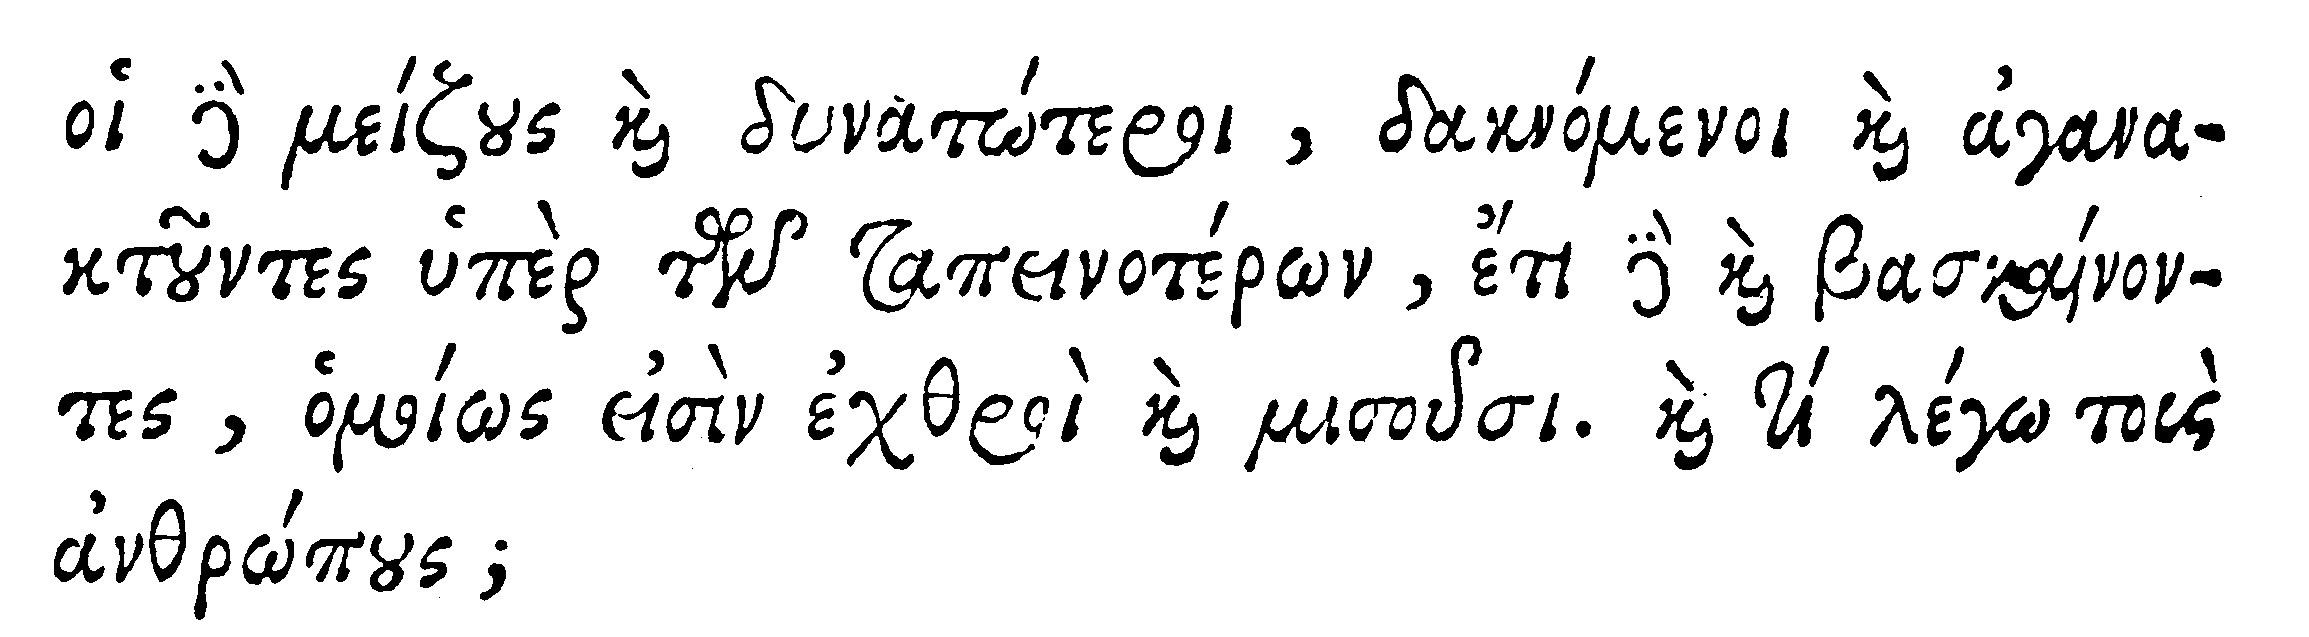 οἱ δὲ μείζους καὶ δυνατώτεροι, δακνόμενοι καὶ ἀγανα-
κτοῦντες ὑπὲρ τῶν ταπεινοτέρων, ἔτι δὲ καὶ βασκαίνον-
τες, ὁμοίως εἰσὶν ἐχθροὶ καὶ μισοῦσι. καὶ τί λέγω τοὺς
ἀνθρώπους;